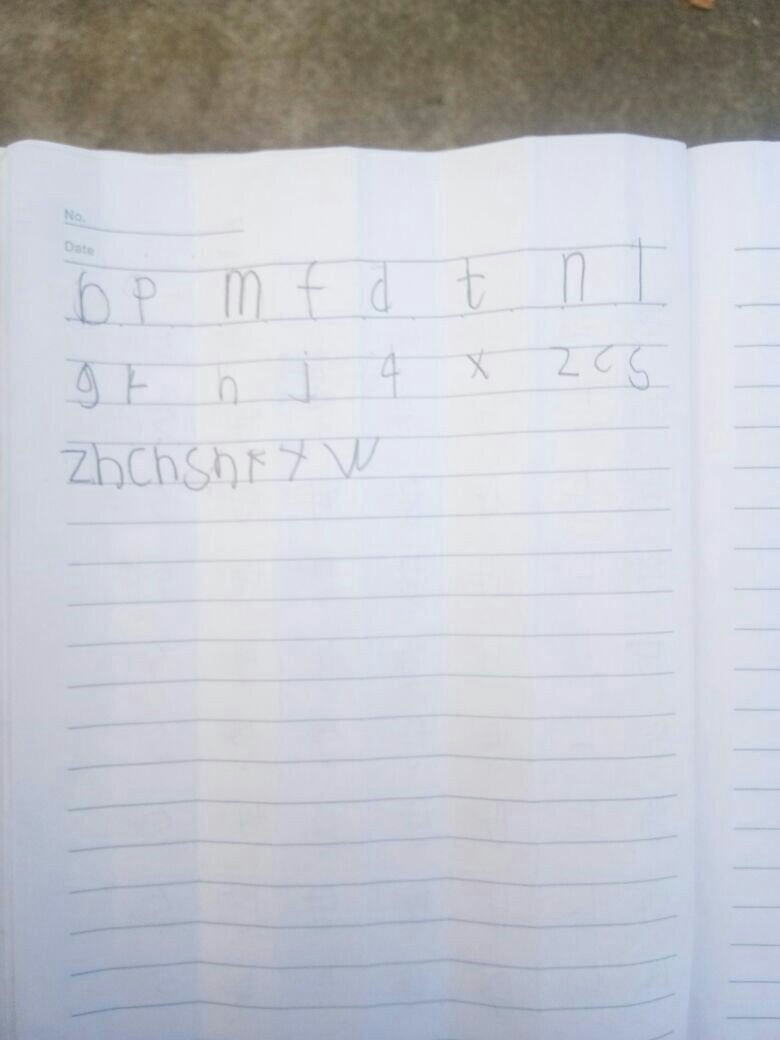 No.
Date
b p m f d t n l
g k h j q x z c s
zh ch sh r y w